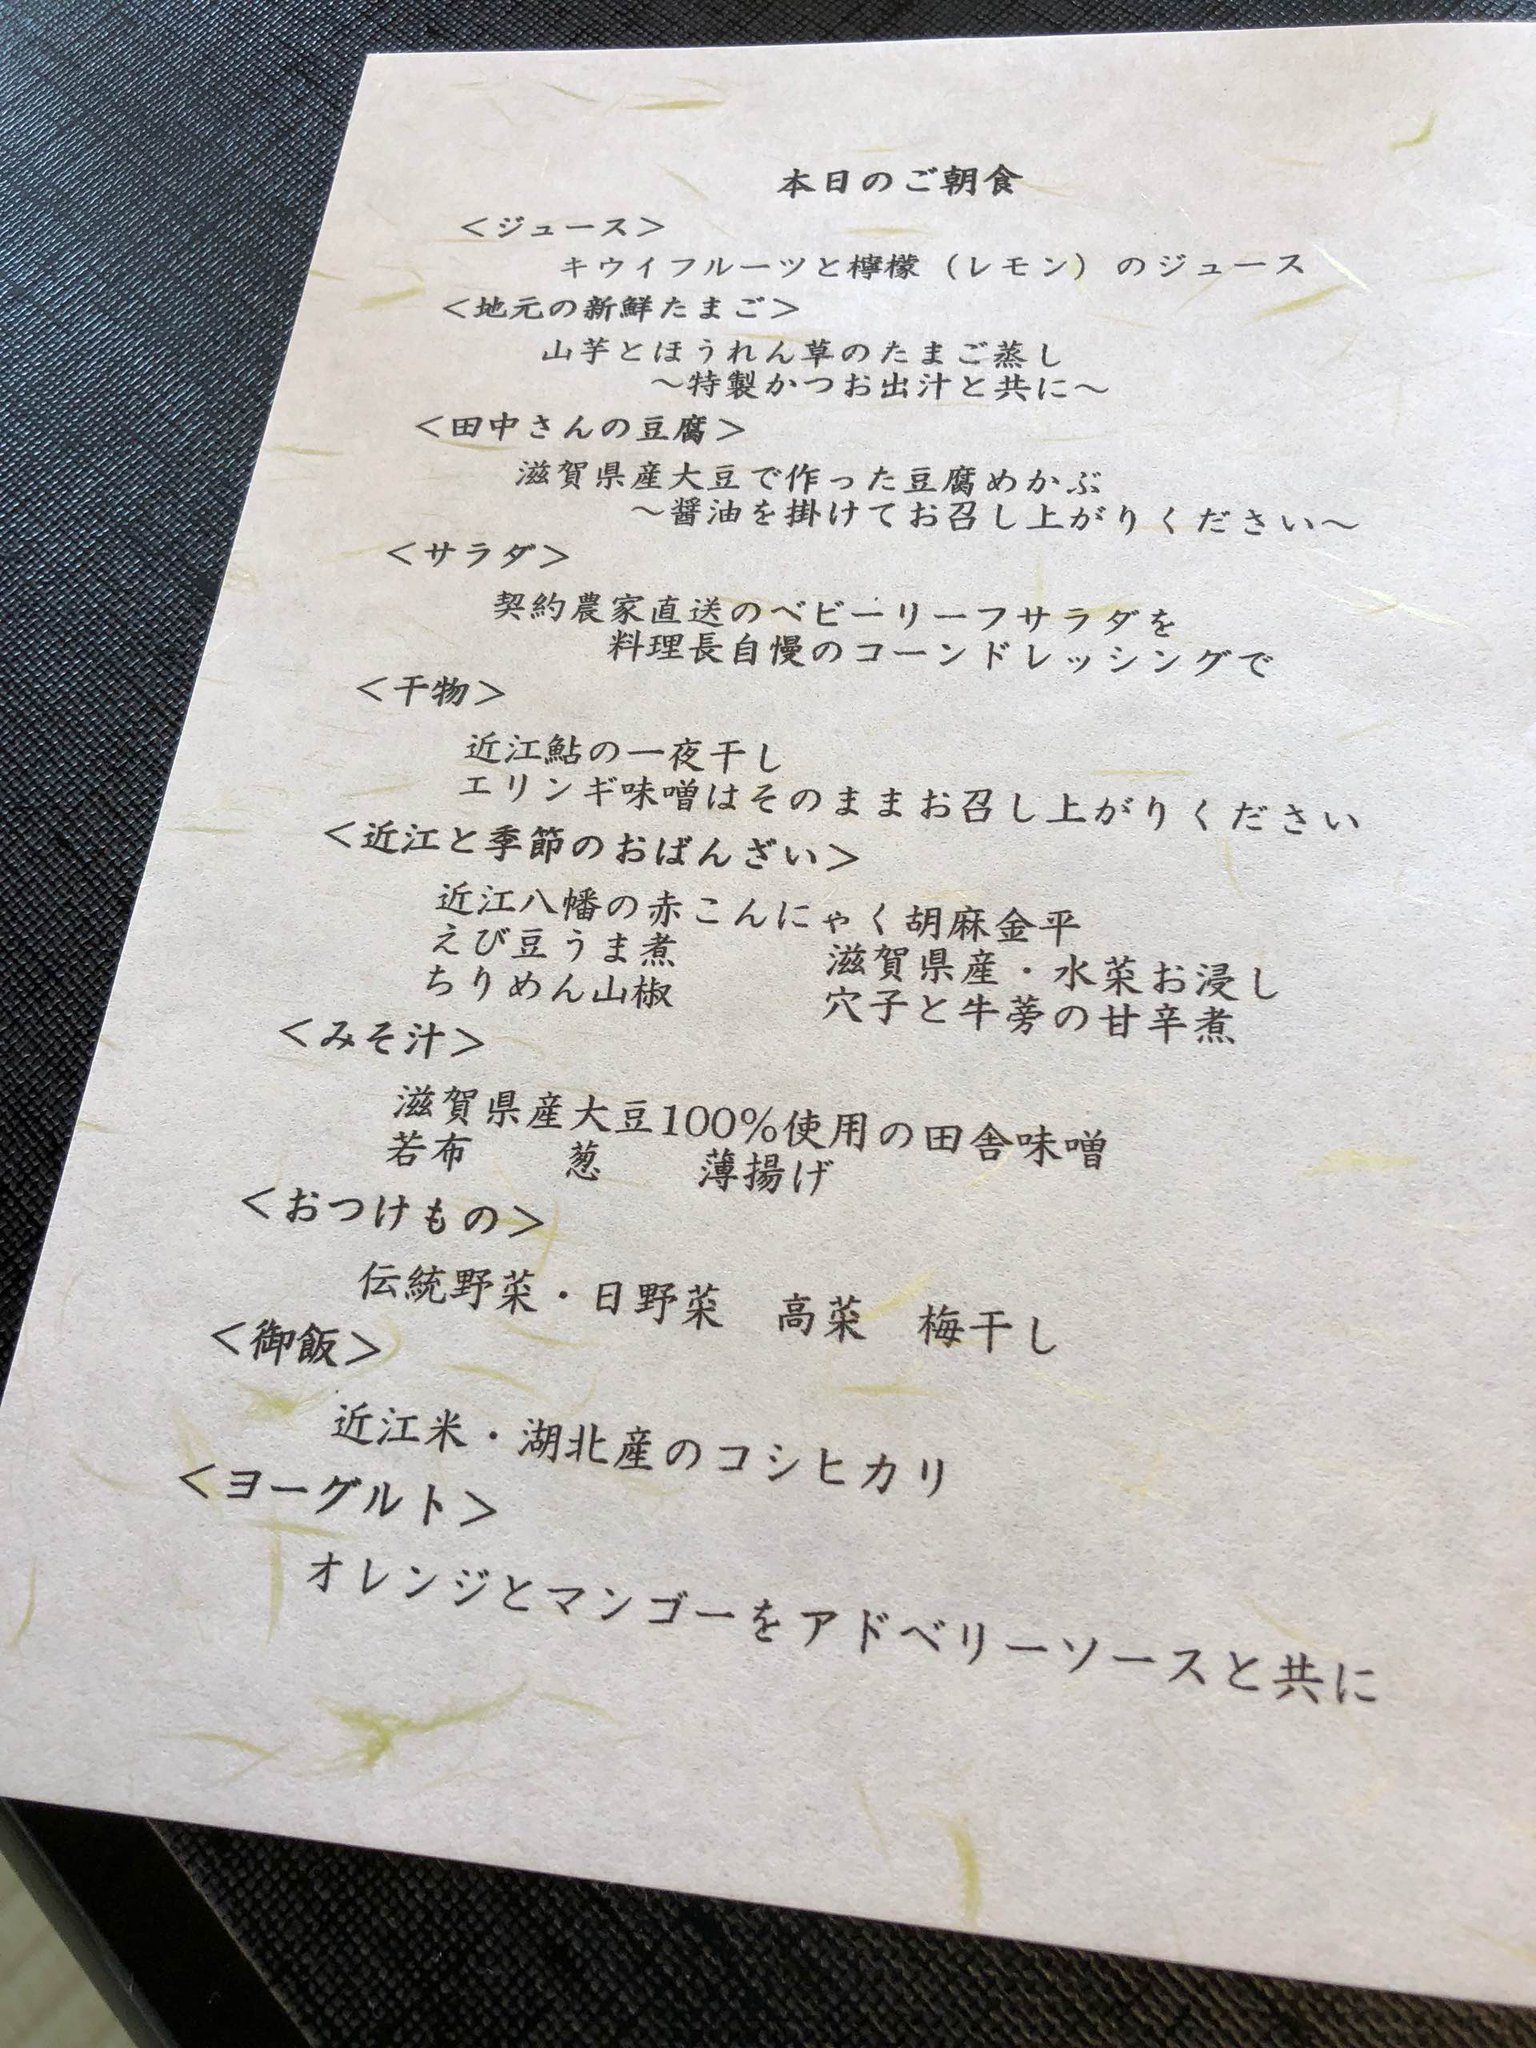 本日のご朝食
＜ジュース＞
キウイフルーツと檸檬（レモン）のジュース
＜地元の新鮮たまご＞
山芋とほうれん草のたまご蒸し
～特製かつお出汁と共に～
＜田中さんの豆腐＞
滋賀県産大豆で作った豆腐めかぶ
～醤油を掛けてお召し上がりください～
＜サラダ＞
契約農家直送のベビーリーフサラダを
料理長自慢のコーンドレッシングで
＜干物＞
近江鮎の一夜干し
エリンギ味噌はそのままお召し上がりください
＜近江と季節のおばんざい＞
近江八幡の赤こんにゃく胡麻金平
えび豆うま煮　滋賀県産・水菜お浸し
ちりめん山椒　穴子と牛蒡の甘辛煮
＜みそ汁＞
滋賀県産大豆100%使用の田舎味噌
若布　葱　薄揚げ
＜おつけもの＞
伝統野菜・日野菜　高菜　梅干し
＜御飯＞
近江米・湖北産のコシヒカリ
＜ヨーグルト＞
オレンジとマンゴーをアドベリーソースと共に